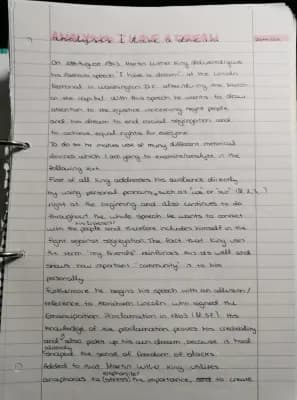 Analysis I have a dream
On 28th August 1963 Martin Luther King delivered/gave
his famous speech "I have a dream" at the Lincoln
Memorial in Washington D.C. after the March
on the capital. With this speech he wants to draw
attention to the injustice concerning negro people
and his dream to end racial segregation and
to achieve equal rights for everyone.
To do so he makes use of many different rhetorical
devices which I am going to examine/analyze in the
following text.
First of all King addresses his audience directly
by using personal pronouns, such as "we" or "our"
right at the beginning and also continues to do
throughout the whole speech. He wants to connect
with the people and therefore includes himself in the
fight against segregation. The fact that King uses
the term "my friends" reinforces this as well and
shows how important "community" is to him
personally.
Furthermore he begins his speech with an allusion/
reference to Abraham Lincoln who signed the
Emancipation Proclamation in 1863. His
knowledge of the proclamation proves his credibility
and also picks up his own dream, because it had
already
shaped the sense of freedom of blacks.
Added to that Martin Luther King utilizes
emphasize
anaphoras to (stress) the importance, to create